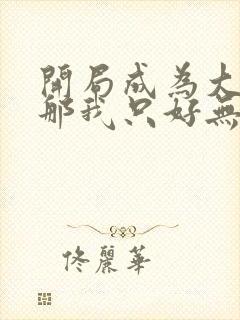 開局成為大
那我只好無
佟麗華